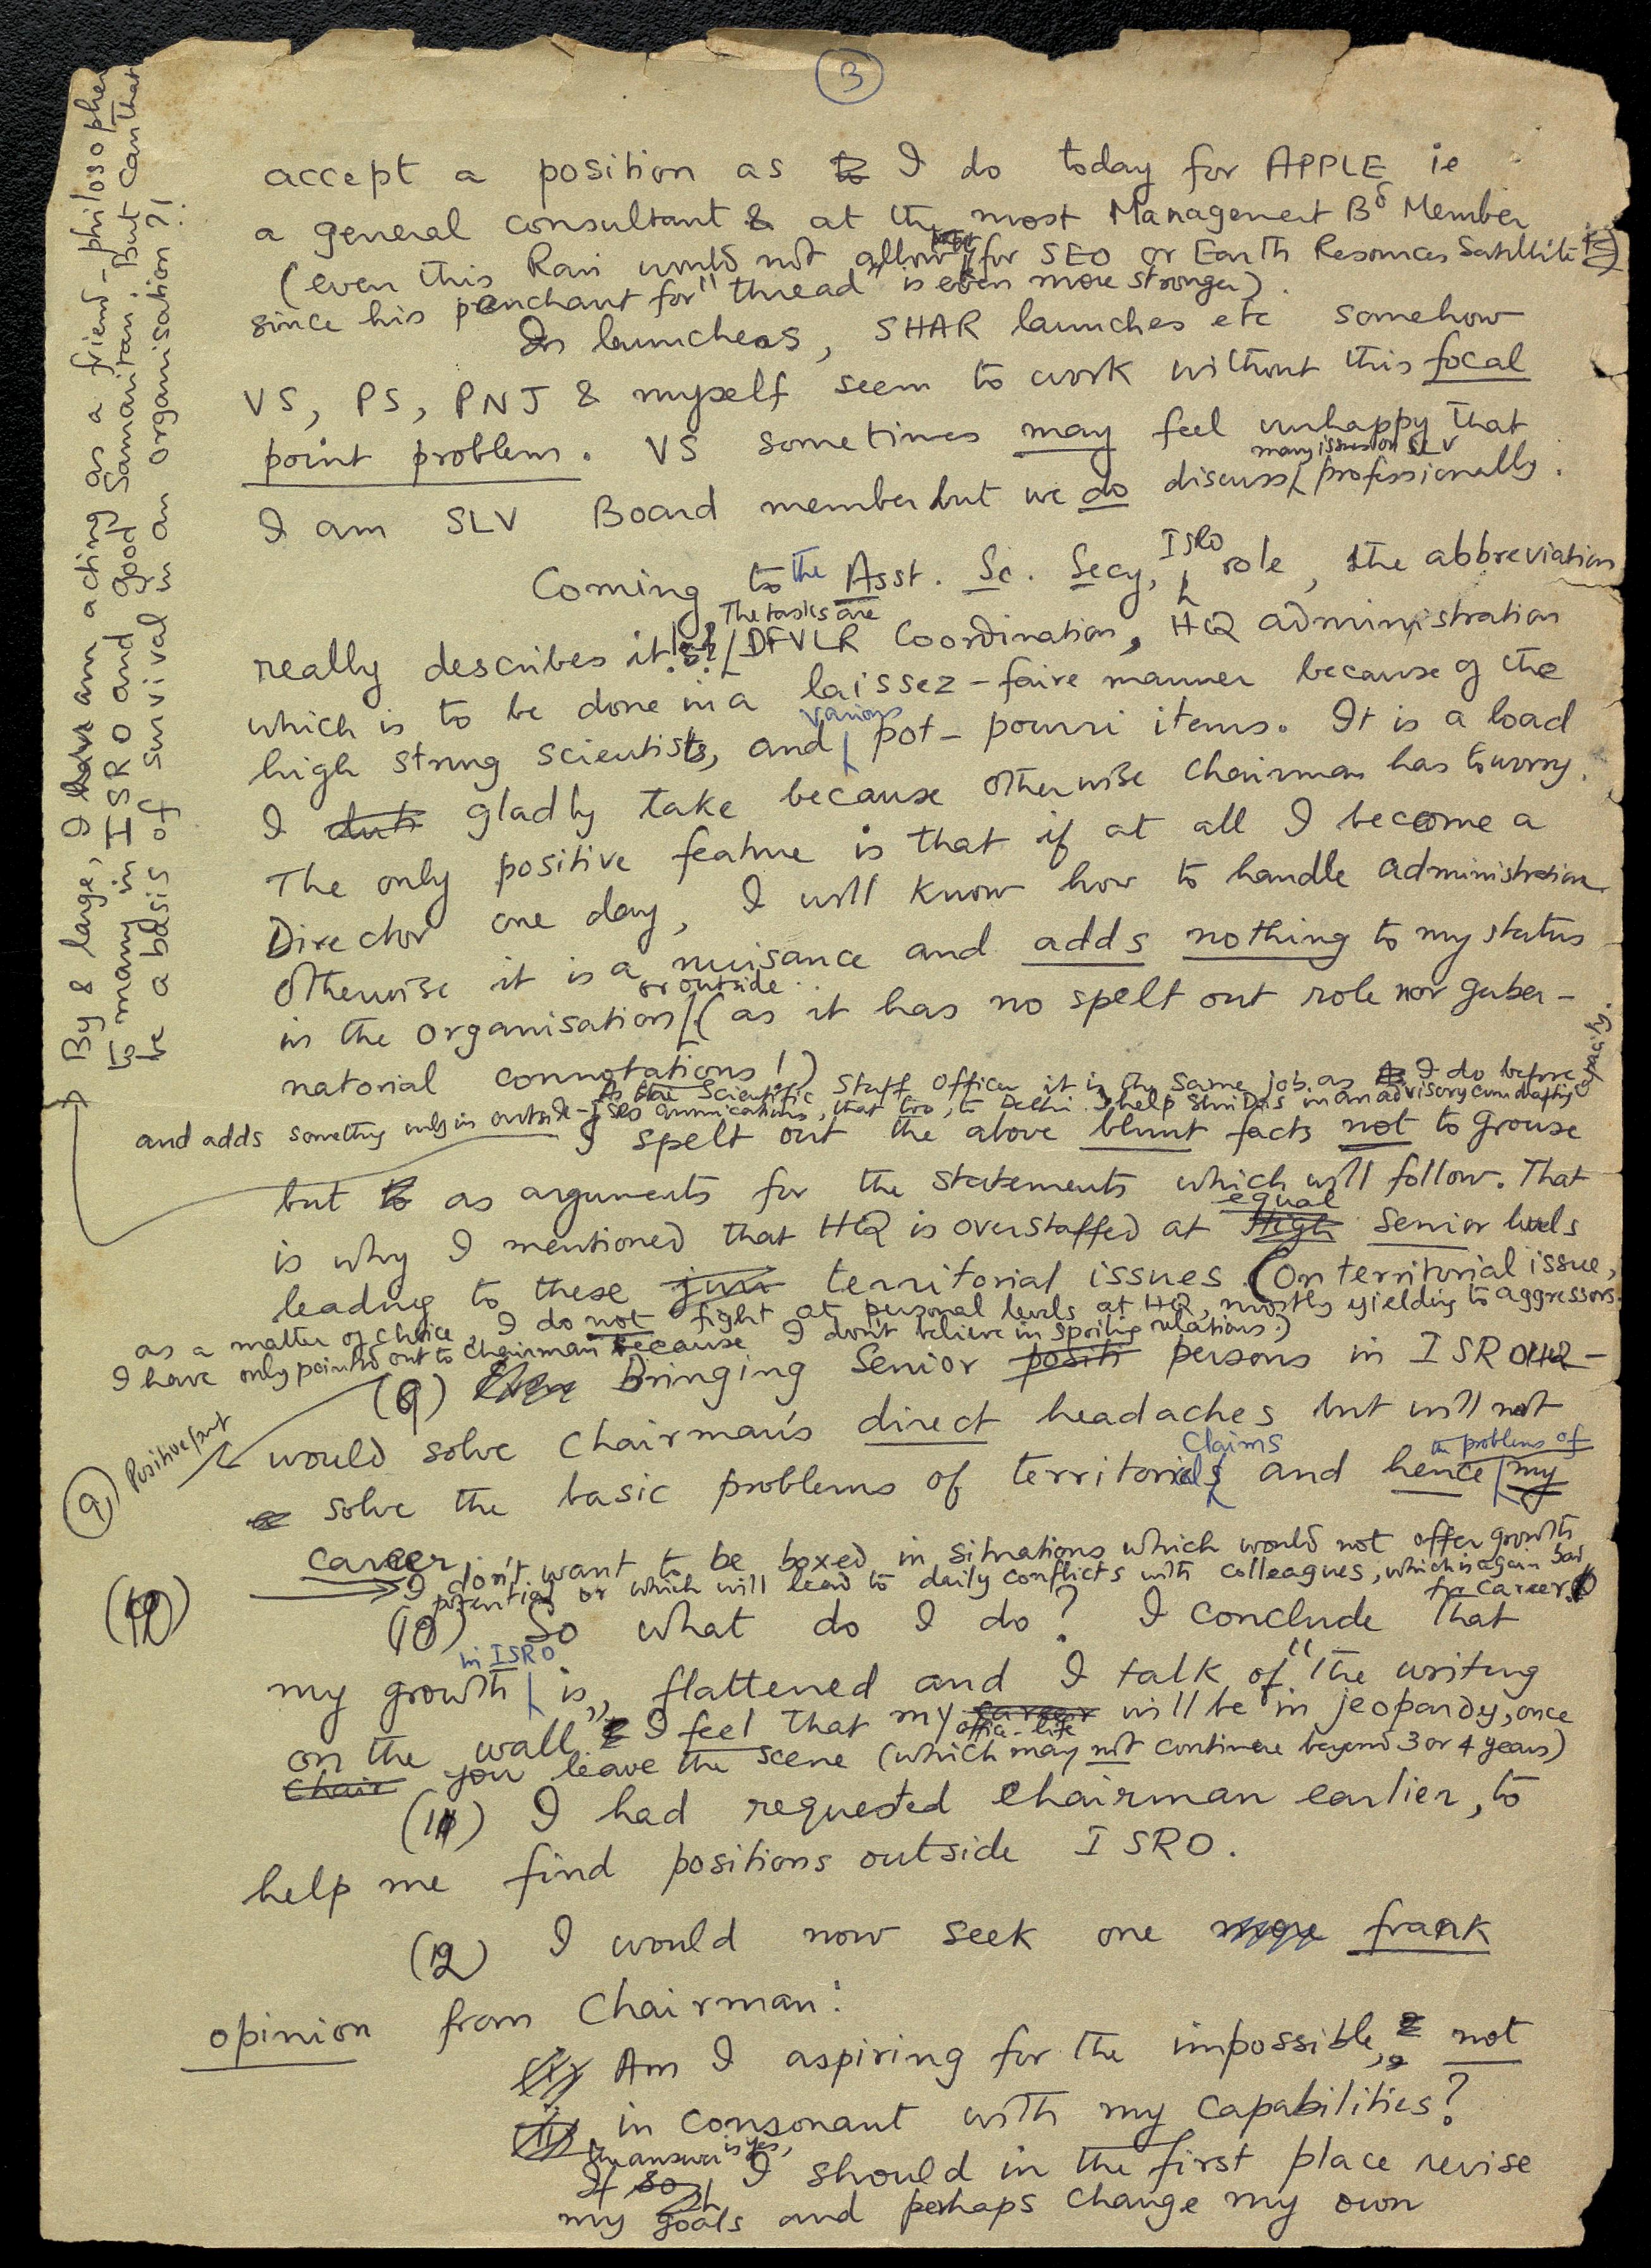 3
accept a position as I do today for APPLE ie
a general consultant & at the most Management Bd Member
(even this Rao would not allow for SEO or Earth Resources Satellite
since his penchant for "thread" is even more stronger).
In launches, SHAR launches etc somehow
VS, PS, PNJ & myself seem to work without this focal
point problem. VS sometimes may feel unhappy that
many issues on SLV
I am SLV Board member but we do discuss professionally.
ISRO
Coming to the Asst. Sc. Secy, role, the abbreviation
The tasks are
really describes it! DFVLR Coordination, HQ administration
which is to be done in a laissez-faire manner because of the
various
high strung scientists, and pot-pourri items. It is a load
I gladly take because otherwise Chairman has to worry.
The only positive feature is that if at all I become a
Director one day, I will know how to handle administration
otherwise it is a nuisance and adds nothing to my status
or outside
in the organisation (as it has no spelt out role nor guber-
natorial connotations!)
As the Scientific Staff Officer it is the same job as I do before
and adds something only in outside-ISRO communications, that too, to Delhi. I help in an advisory cum drafting capacity.
I spelt out the above blunt facts not to grouse
but as arguments for the statements which will follow. That
equal
is why I mentioned that HQ is overstaffed at High senior levels
leading to these territorial issues. (On territorial issue,
as a matter of choice, I do not fight at personal levels at HQ, mostly yielding to aggressors.
I have only pointed out to Chairman because I don't believe in spoiling relations.)
(9) Even Bringing Senior positi persons in ISRO HQ-
Positive part
would solve Chairman's direct headaches but will not
claims
the problems of
(9)
solve the basic problems of territorial and hence my
career.
I don't want to be boxed in situations which would not offer growth
potential or which will lead to daily conflicts with colleagues, which is again bad
for career.
(10)
(10) So what do I do? I conclude that
in ISRO
my growth is flattened and I talk of "the writing
on the wall". I feel that my career will be in jeopardy, once
office-life
Chair you leave the scene (which may not continue beyond 3 or 4 years)
(11) I had requested Chairman earlier, to
help me find positions outside ISRO.
(12) I would now seek one more frank
opinion from Chairman:
(i) Am I aspiring for the impossible, & not
(ii) in consonant with my capabilities?
the answer is yes,
If so I should in the first place revise
my goals and perhaps change my own
By & large, I have am acting as a friend-philosopher
to many in ISRO and good Samaritan. But can that
be a basis of survival in an organisation?!